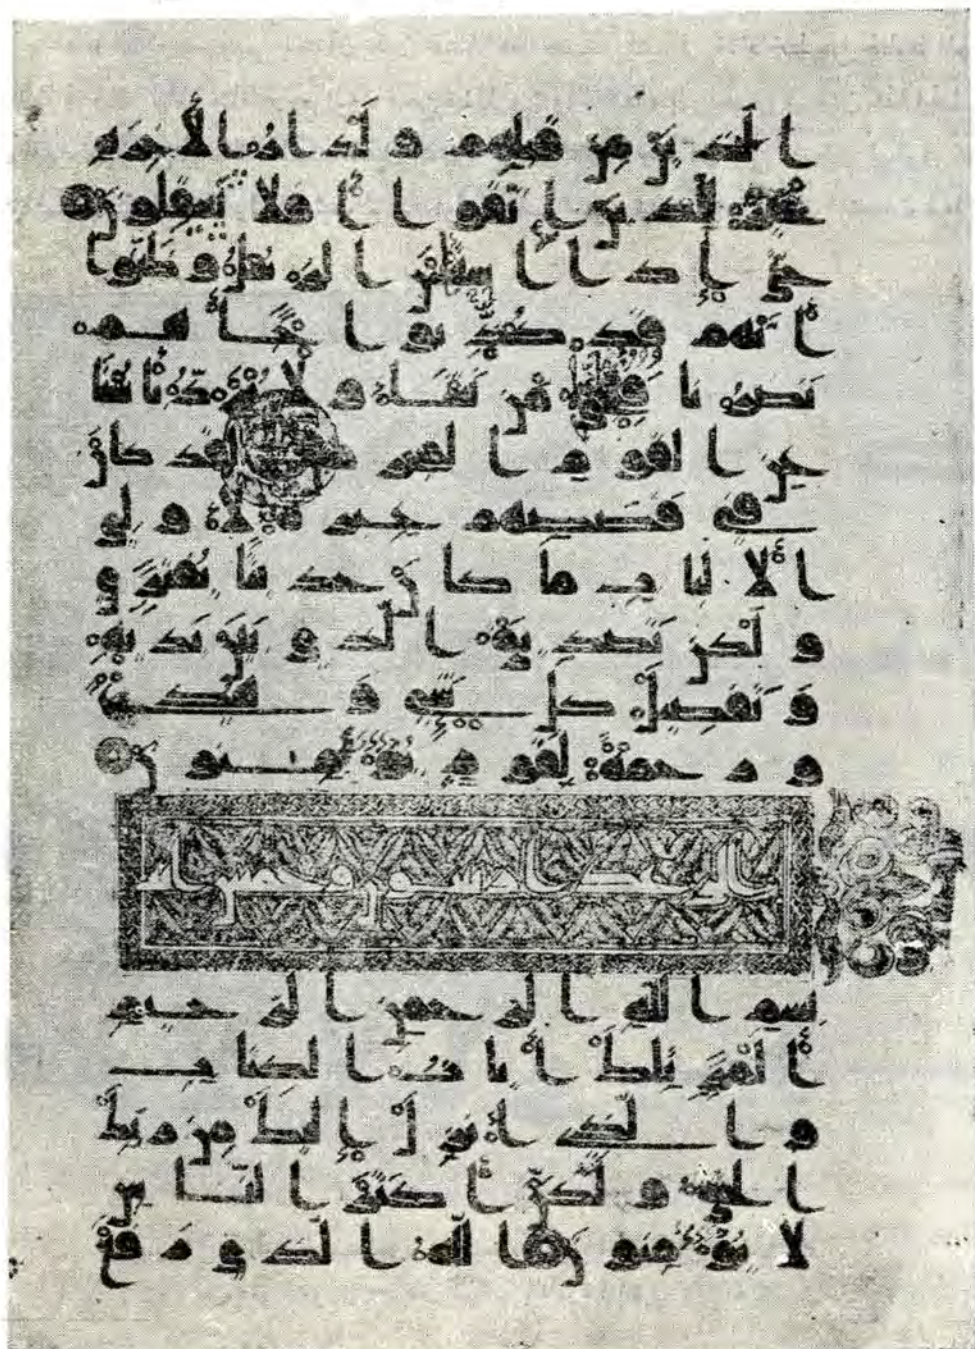 الذين من قبلهم ولدار الاخرة
خير للذين اتقوا أفلا تعقلون
حتى إذا استيئس الرسل وظنوا
أنهم قد كذبوا جاءهم
نصرنا فنجي من نشاء ولا يرد بأسنا
عن القوم المجرمين لقد كان
في قصصهم عبرة لأولي
الألباب ما كان حديثا يفترى
ولكن تصديق الذي بين يديه
وتفصيل كل شيء وهدى
ورحمة لقوم يؤمنون
بسم الله الرحمن الرحيم
المر تلك آيات الكتاب
والذي أنزل إليك من ربك
الحق ولكن أكثر الناس
لا يؤمنون الله الذي رفع